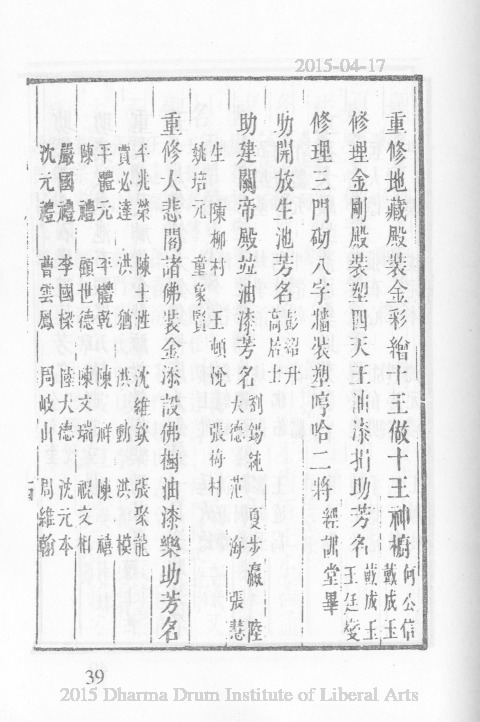 2015-04-17
重修地藏殿裝金彩繪十王做十王神櫥 何公信 戴成玉
修理金剛殿裝塑四天王油漆捐助芳名 戴成玉 王廷燮
修理三門砌八字牆裝塑哼哈二將 經訓堂畢
助開放生池芳名 彭紹升 高居士
助建關帝殿並油漆芳名 劉錫純 夏步瀛 陸
大德 范 海 張慧
生 陳柳村 王頓悅 張荷村
姚培元 童象賢
重修大悲閣諸佛裝金添設佛櫥油漆樂助芳名
平兆榮 陳士性 沈維欽 張聚龍
賈必達 洪 猶 洪 勳 洪 模
平體元 平體乾 陳 祥 陳 禧
陳 禮 顧世德 陳文瑞 祝文相
嚴國禮 李國樑 陸大德 沈元本
沈元禮 曹雲鳳 局岐山 局維翰
39
2015 Dharma Drum Institute of Liberal Arts